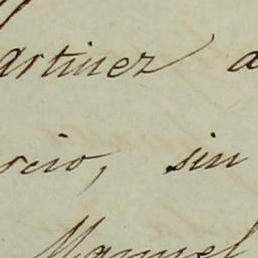 artinez a
rcio, sin
Manuel